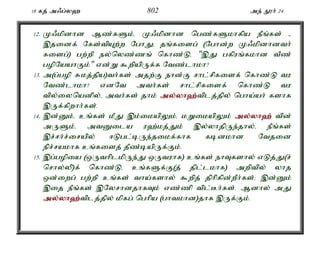 18 கத் அஃப்லஹ 802 அந் நூர் 24
12. முஃமினான ஆண்களும், முஃமினான பெண்களுமாகிய நீங்கள் -
இதனைக் கேள்வியுற்ற போது, தங்களைப் (போன்ற முஃமினானவர்
களைப்) பற்றி நல்லெண்ணங் கொண்டு, "இது பகிரங்கமான வீண்
பழியேயாகும்" என்று கூறியிருக்க வேண்டாமா?
13. அ(ப்பழி சுமத்திய)வர்கள் அதற்கு நான்கு சாட்சிகளைக் கொண்டு வர
வேண்டாமா? எனவே அவர்கள் சாட்சிகளைக் கொண்டு வர
வில்லையெனில், அவர்கள் தாம் அல்லாஹ்விடத்தில் பொய்யர் களாக
இருக்கிறார்கள்.
14. இன்னும், உங்கள் மீது இம்மையிலும், மறுமையிலும் அல்லாஹ் வின்
அருளும், அவனுடைய ரஹ்மத்தும் இல்லாதிருந்தால், நீங்கள்
இச்சர்ச்சையில் ஈடுபட்டிருந்தமைக்காக கடினமான வேதனை
நிச்சயமாக உங்களைத் தீண்டியிருக்கும்.
15. இப்பழியை (ஒருவரிடமிருந்து ஒருவராக) உங்கள் நாவுகளால் எடுத்து(ச்
சொல்லி)க் கொண்டு, உங்களுக்கு(த் திட்டமாக) அறிவில் லாத
ஒன்றைப் பற்றி உங்கள் வாய்களால் கூறித் திரிகின்றீர்கள்; இன்னும்
இதை நீங்கள் இலேசானதாகவும் எண்ணி விட்டீர்கள். ஆனால் அது
அல்லாஹ்விடத்தில் மிகப் பெரிய (பாவமான)தாக இருக்கும்.